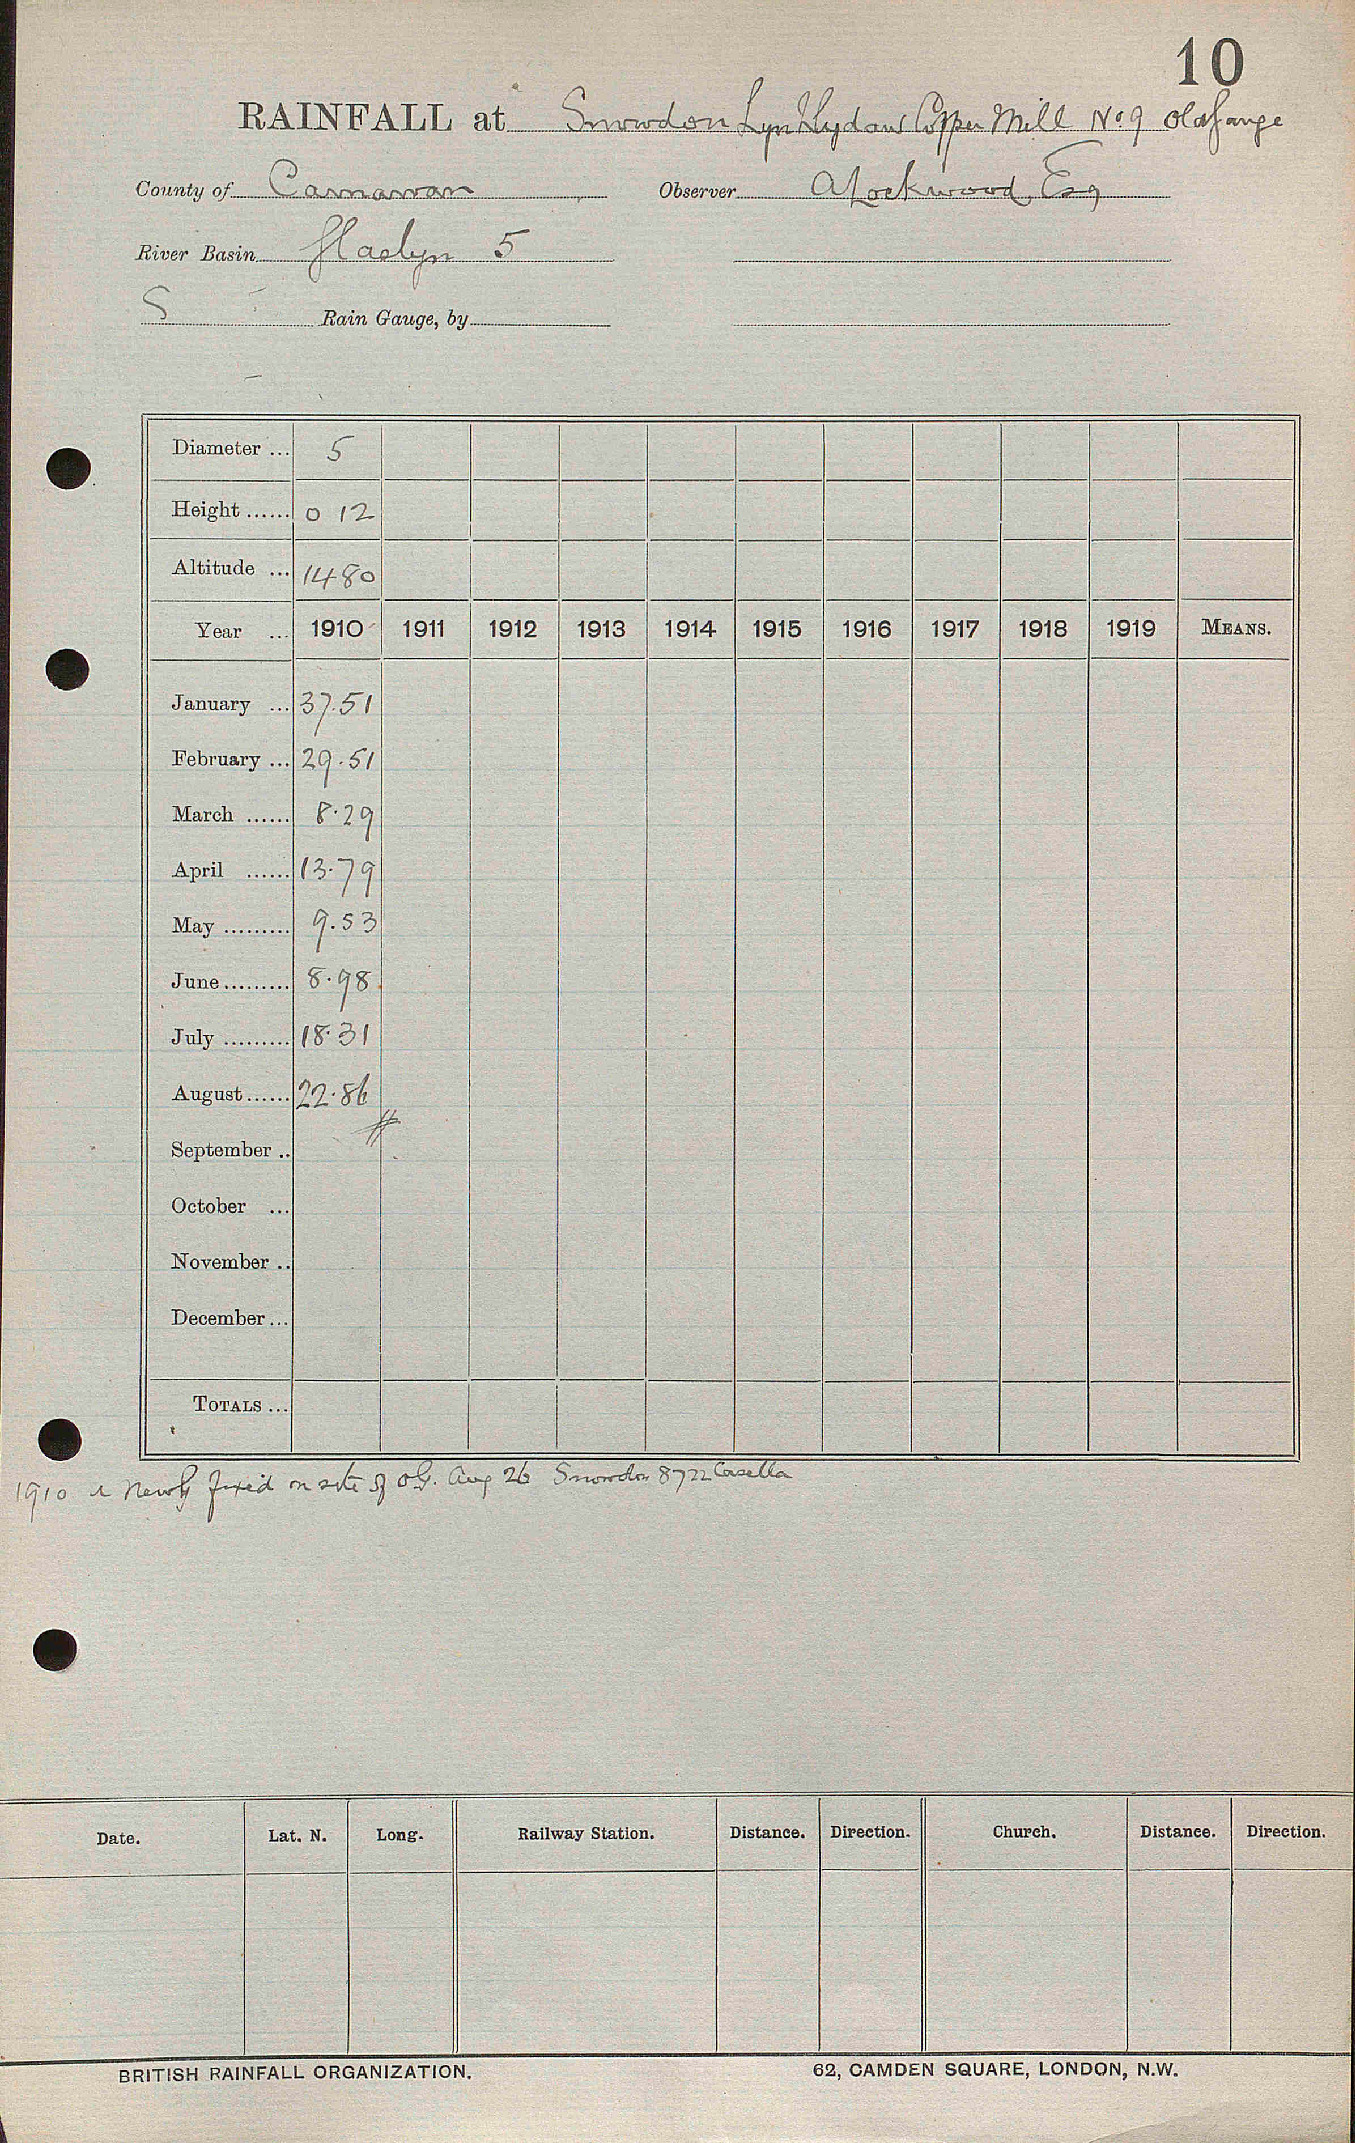 10
RAINFALL at Snowdon Lyn Llydaw Copper Mill No 9 Old Gauge
County of Carnarvan Observer A Lockwood Esq
River Basin Glaslyn 5
S Rain Gauge, by
Diameter ... 5
Height ...... 0 12
Altitude ... 1480
Year ... 1910 1911 1912 1913 1914 1915 1916 1917 1918 1919 MEANS.
January ... 37.51
February ... 29.51
March ...... 8.29
April ...... 13.79
May ......... 9.53
June ......... 8.98
July ......... 18.31
August ...... 22.86
September ..
October ...
November ..
December ...
TOTALS ...
1910 Newly fixed on site of O.G. Aug 26 Snowdon 8722 Casella
Date. Lat. N. Long. Railway Station. Distance. Direction. Church. Distance. Direction.
BRITISH RAINFALL ORGANIZATION. 62, CAMDEN SQUARE, LONDON, N.W.